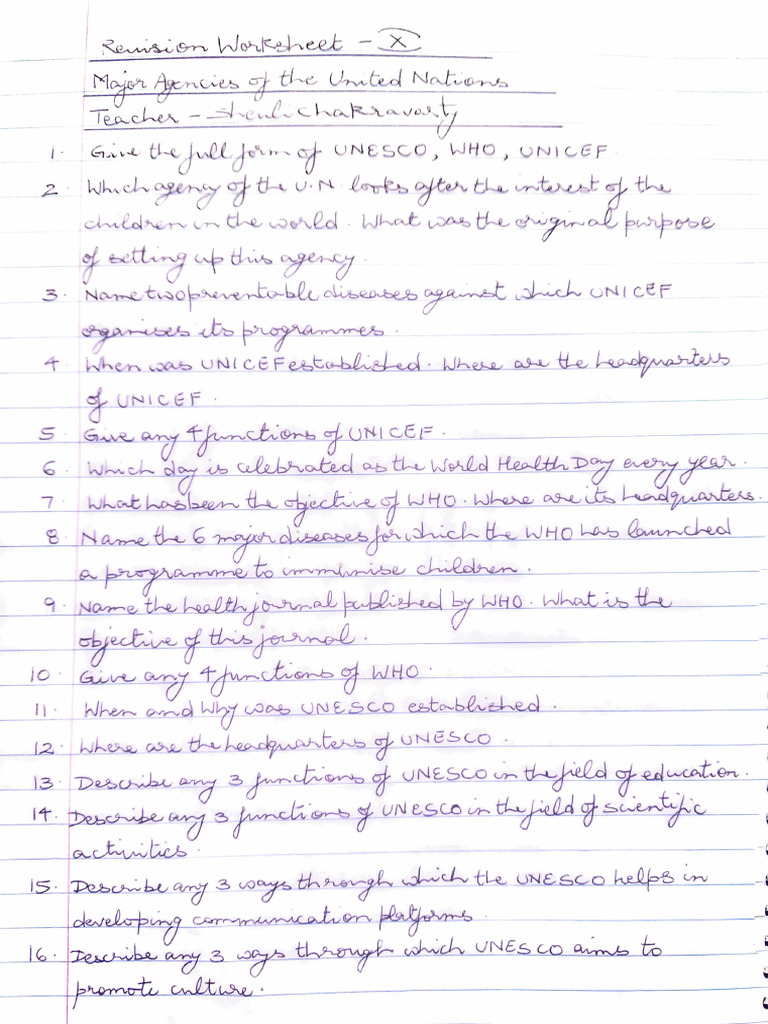 Revision Worksheet - X
Major Agencies of the United Nations
Teacher - Sheuli Chakravarty
1. Give the full form of UNESCO, WHO, UNICEF
2. Which agency of the U.N. looks after the interest of the
children in the world. What was the original purpose
of setting up this agency.
3. Name two preventable diseases against which UNICEF
organises its programmes.
4. When was UNICEF established. Where are the headquarters
of UNICEF.
5. Give any 4 functions of UNICEF.
6. Which day is celebrated as the World Health Day every year.
7. What has been the objective of WHO. Where are its headquarters.
8. Name the 6 major diseases for which the WHO has launched
a programme to immunise children.
9. Name the health journal published by WHO. What is the
objective of this journal.
10. Give any 4 functions of WHO.
11. When and Why was UNESCO established.
12. Where are the headquarters of UNESCO.
13. Describe any 3 functions of UNESCO in the field of education.
14. Describe any 3 functions of UNESCO in the field of scientific
activities.
15. Describe any 3 ways through which the UNESCO helps in
developing communication platforms.
16. Describe any 3 ways through which UNESCO aims to
promote culture.